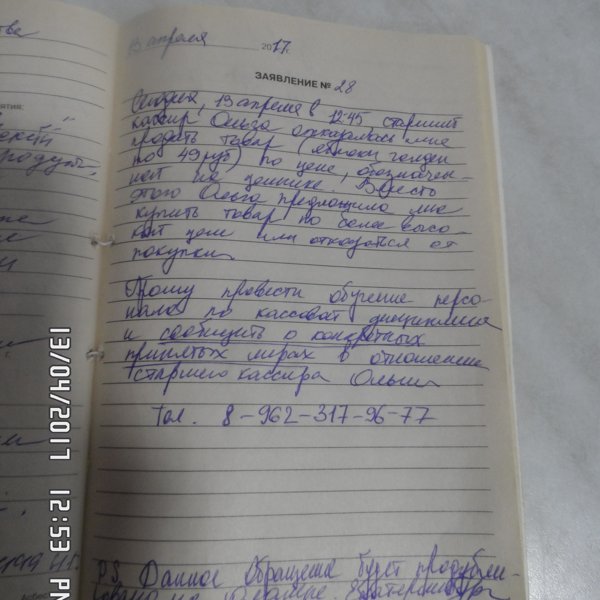 13 апреля 2017г.
ЗАЯВЛЕНИЕ № 28
Сегодня, 13 апреля в 12:45 старший
кассир Ольга отказалась мне
продать товар (яблоки голден
по 49 руб) по цене, обозначен-
ной на ценнике. Вместо
этого Ольга предложила мне
купить товар по более высо-
кой цене или отказаться от
покупки.
Прошу провести обучение персо-
нала по кассовой дисциплине
и сообщить о конкретных
принятых мерах в отношении
старшего кассира Ольги
Тел. 8-962-317-96-77
P.S. Данное обращение будет продубли-
ровано на
13/04/2017 12:53 PM